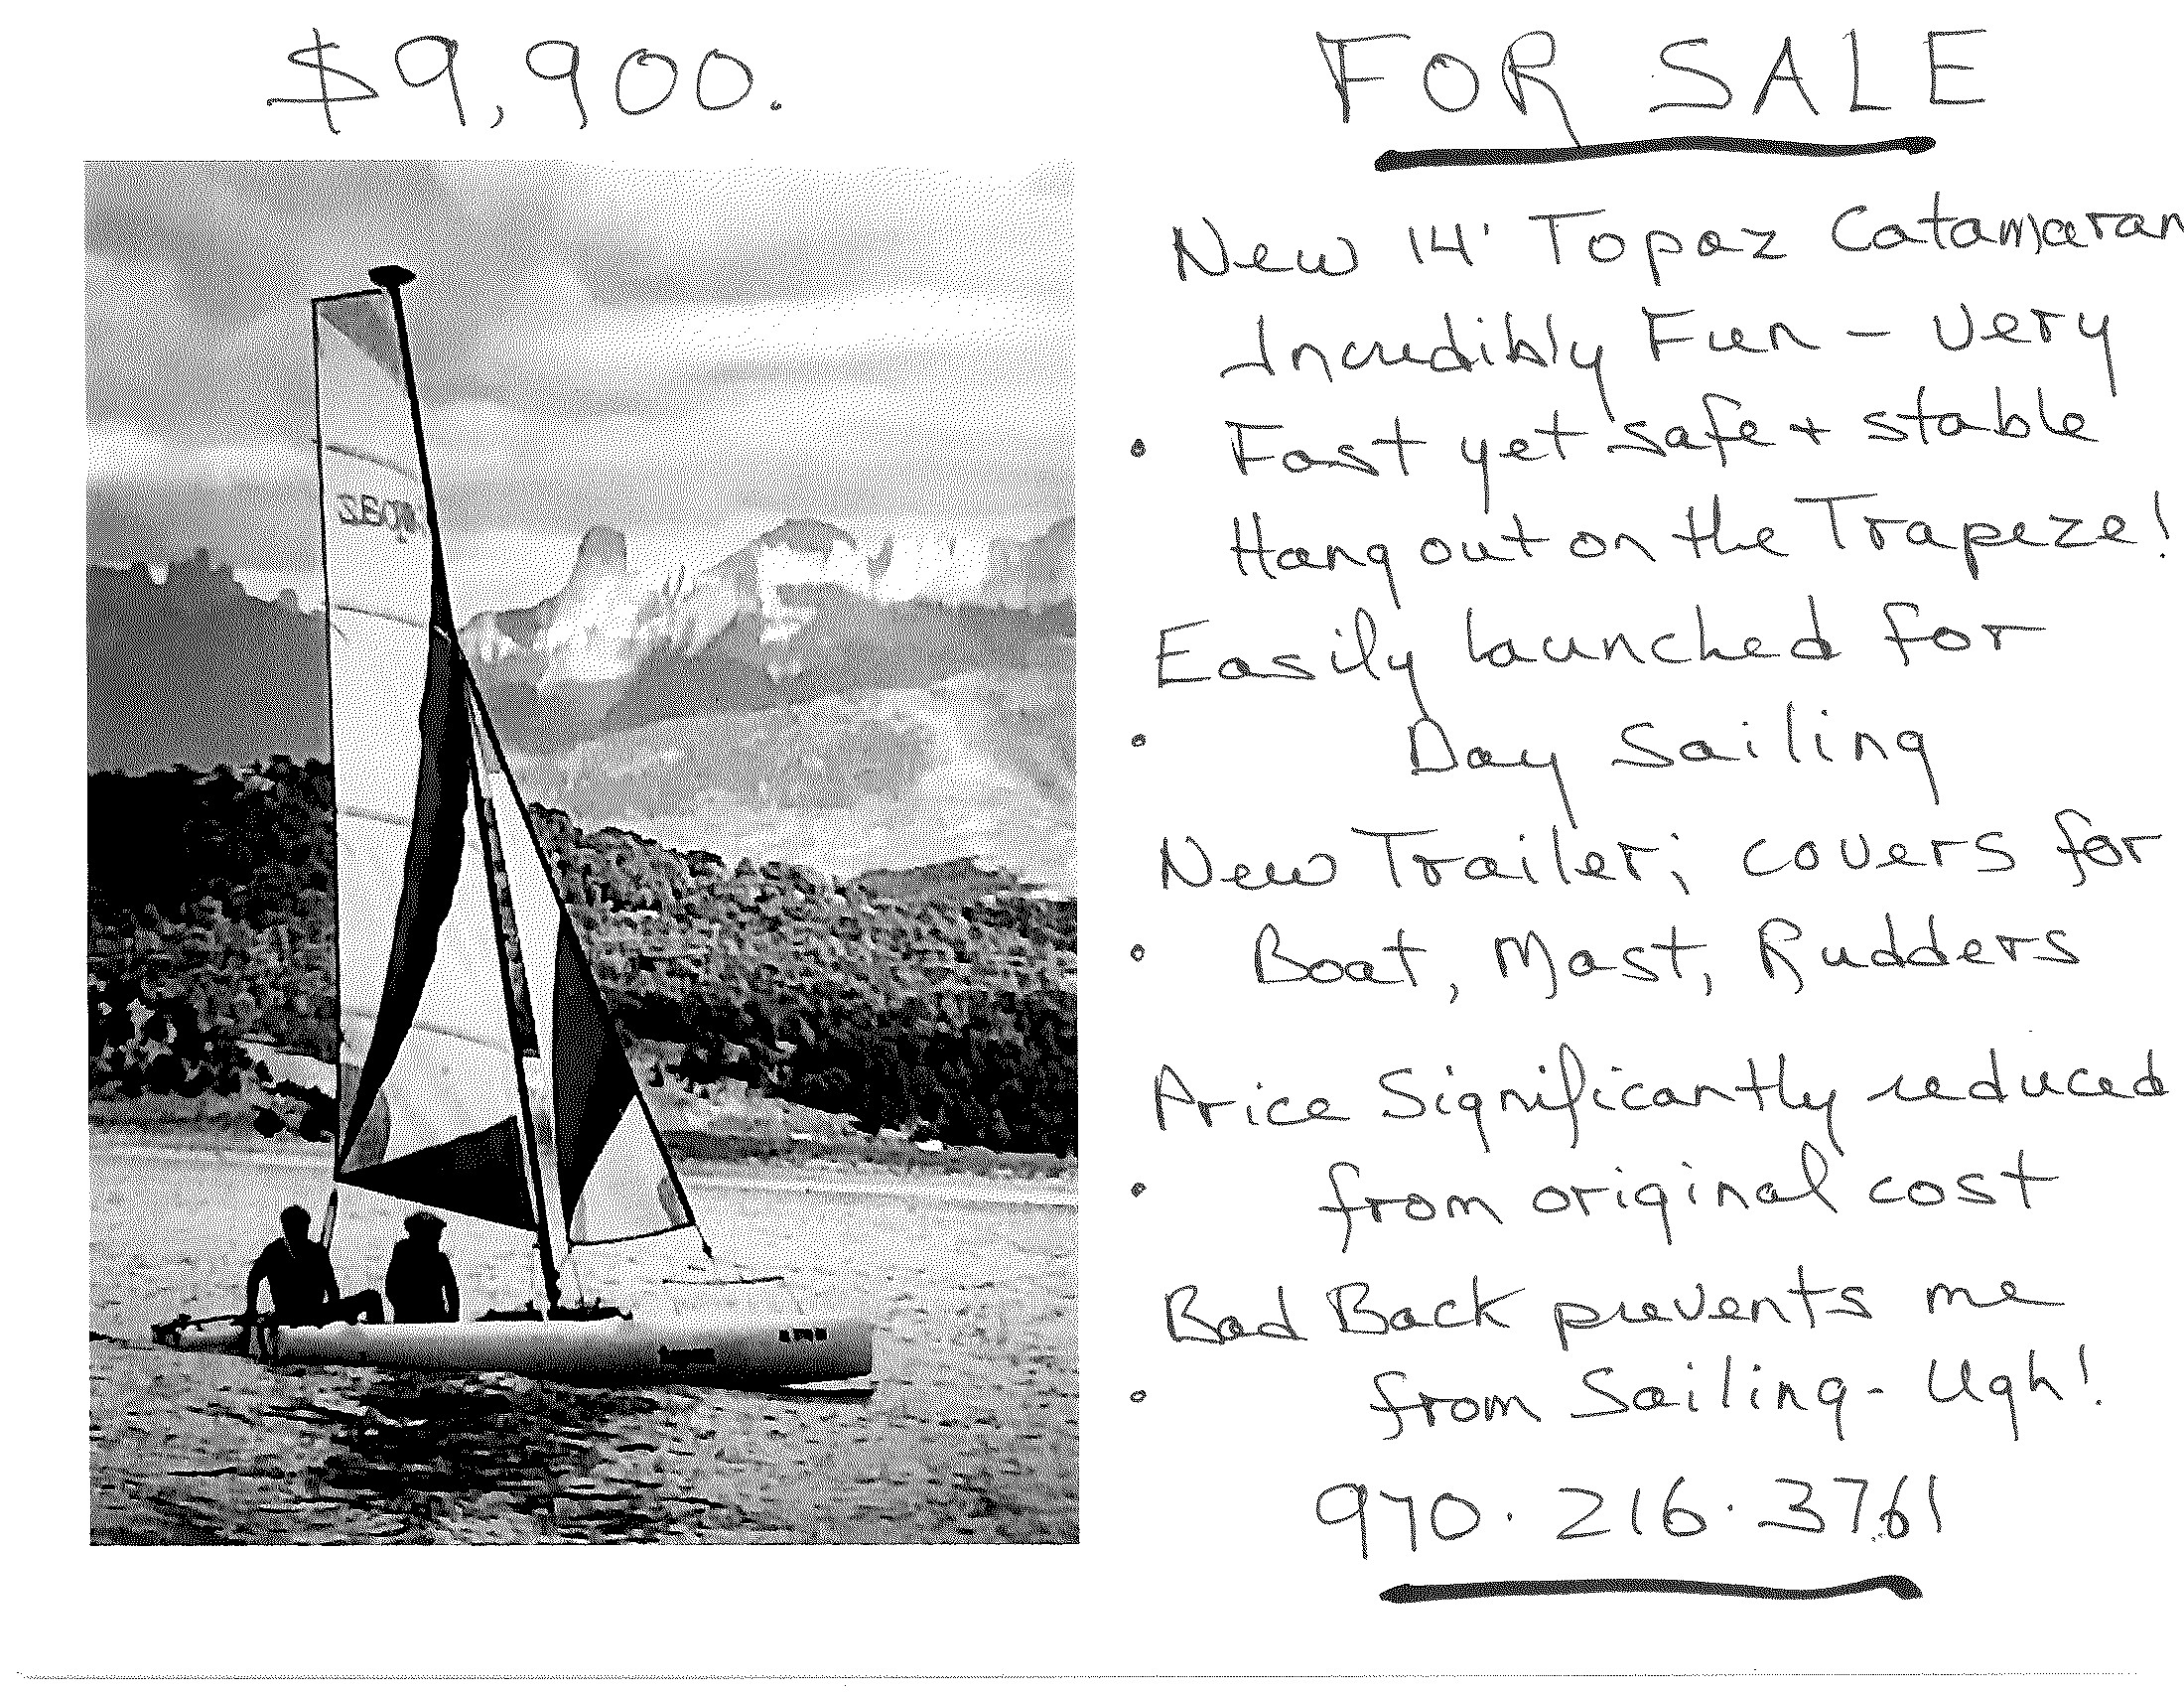 $9,900.
FOR SALE
New 14' Topaz Catamaran
Incredibly Fun - Very
• Fast yet safe + stable
Hang out on the Trapeze!
Easily launched for
• Day Sailing
New Trailer; covers for
• Boat, Mast, Rudders
Price Significantly reduced
• from original cost
Bad Back prevents me
• from Sailing - Ugh!
970.216.3761